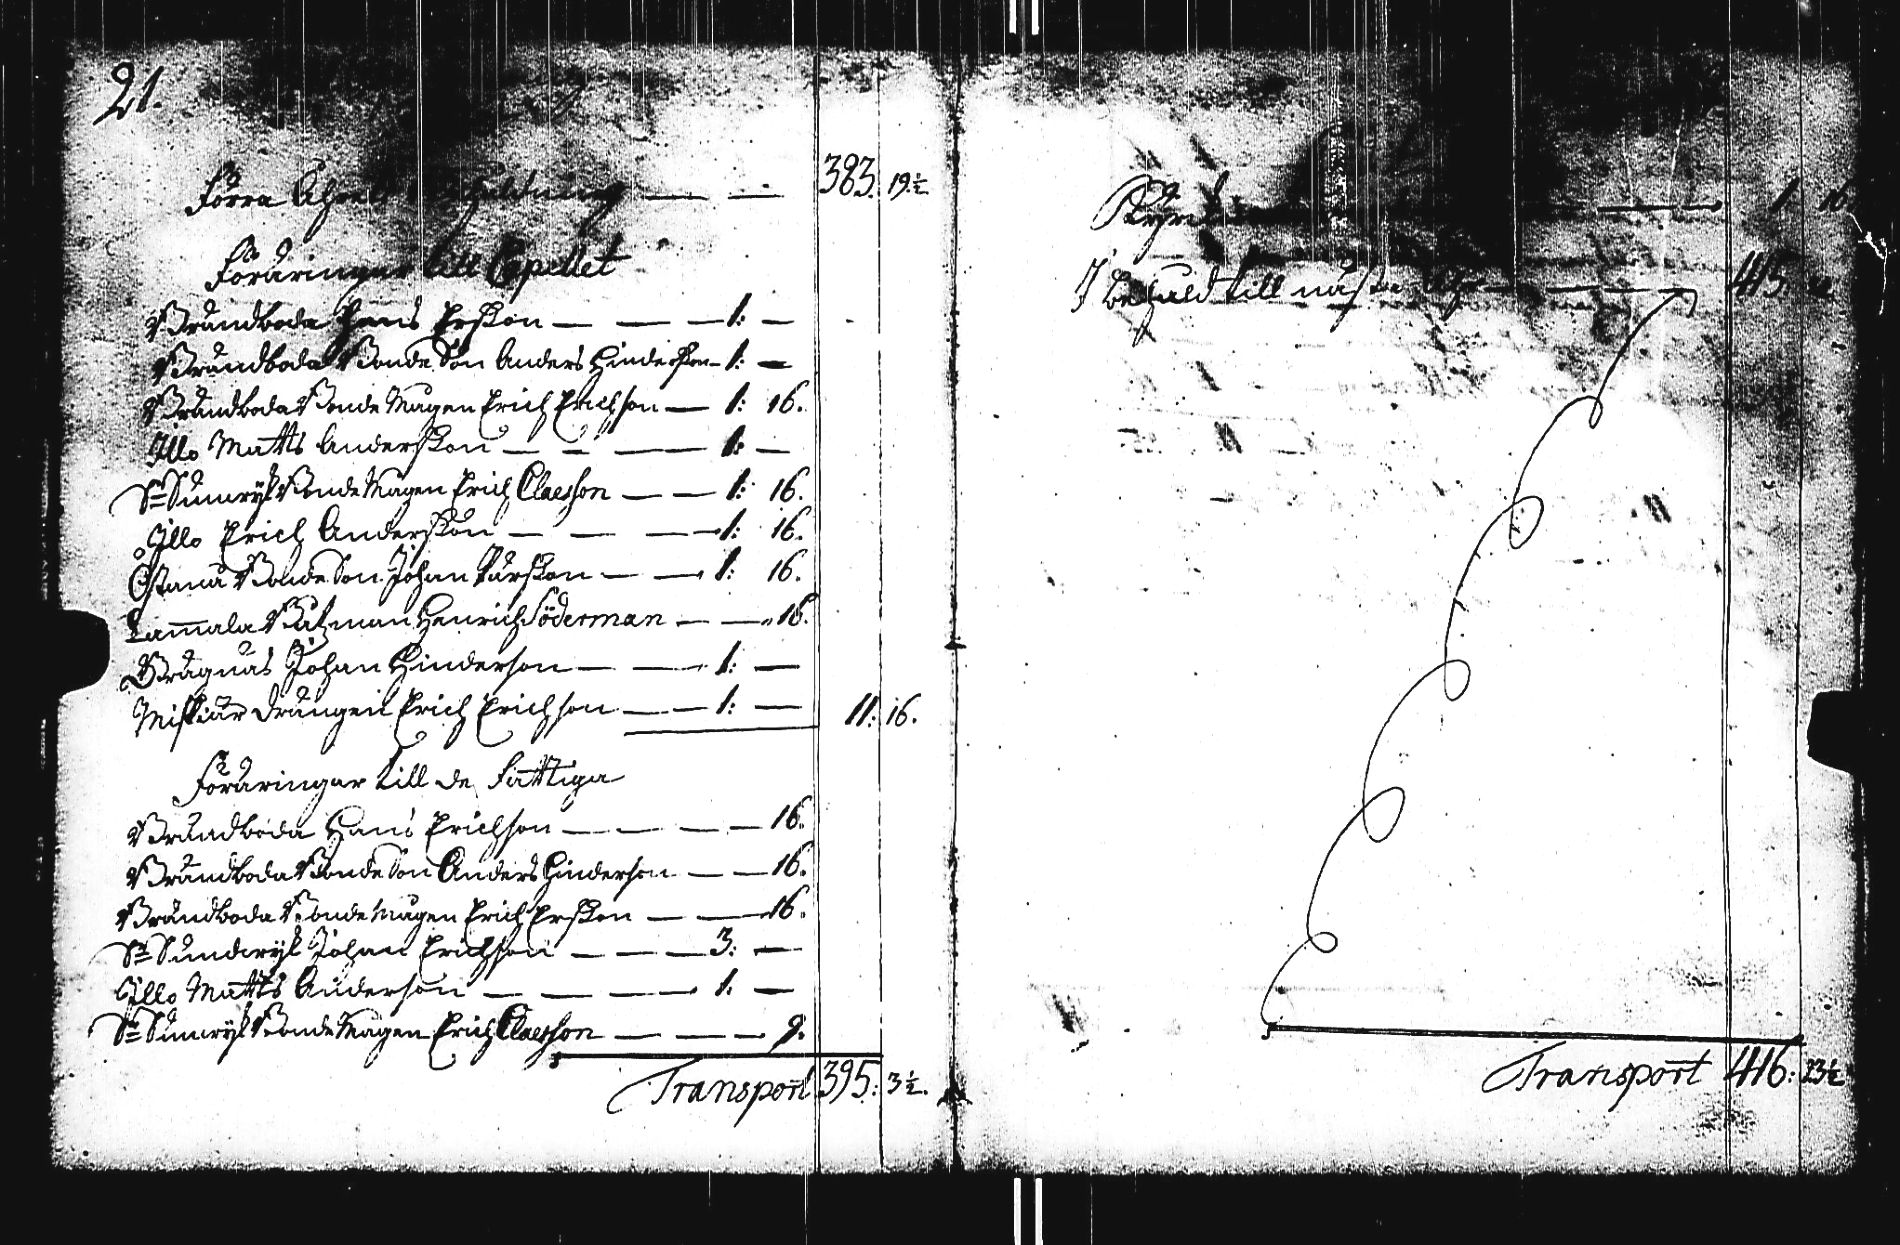 21.
Förra Åhrets behåldning — — 383. 19½
Föräringar till Capellet
Brändboda Hans Erßon — — — 1: —
Brändboda Bonde Son Anders Hinderßon — 1: —
Brändboda Bonde Magen Erich Erichson — 1: 16.
Illo Matts Anderßon — — — 1: —
St Sunwyk Bonde Magen Erich Claesson — — 1: 16.
Illo Erich Anderßon — — — 1: 16.
Östanå Bonde Son Johan Pärßon — — 1: 16.
Lam̄ala Båtzman Henrich Söderman — — „ 16.
Bragnäs Johan Hinderson — — 1: —
Miskiär drängen Erich Erichson — — 1: — 11: 16.
Föräringar till de Fattiga
Brändboda Hans Erichson — — — — 16.
Brändboda Bonde Son Anders Hinderson — — 16.
Brändboda Bonde Magen Erich Erßon — — 16.
St Sundwyk Johan Erichson — — — 3: —
Illo Matts Anderson — — — — 1. —
St Sunwyk Bonde Magen Erich Claesson — — — 9.
Transport 395: 3½.
1 16
I behåld till nästa Åhr — — 415
Transport 416: 23½